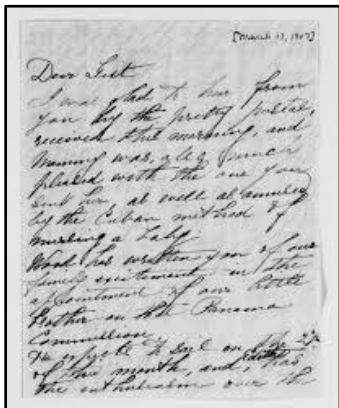 [March 13, 1907]
Dear Sist
I was glad to hear from
you by the pretty postal,
received this morning, and
Mammy was, also, much
pleased with the one you
sent her, as well as amused
by the Cuban method of
nursing a baby.
has written you of our
family excitement in the
appointment of our little
brother on the Panama
Commission.
He expects to sail on the
of the month, and, Edith has
the enthusiasm over the